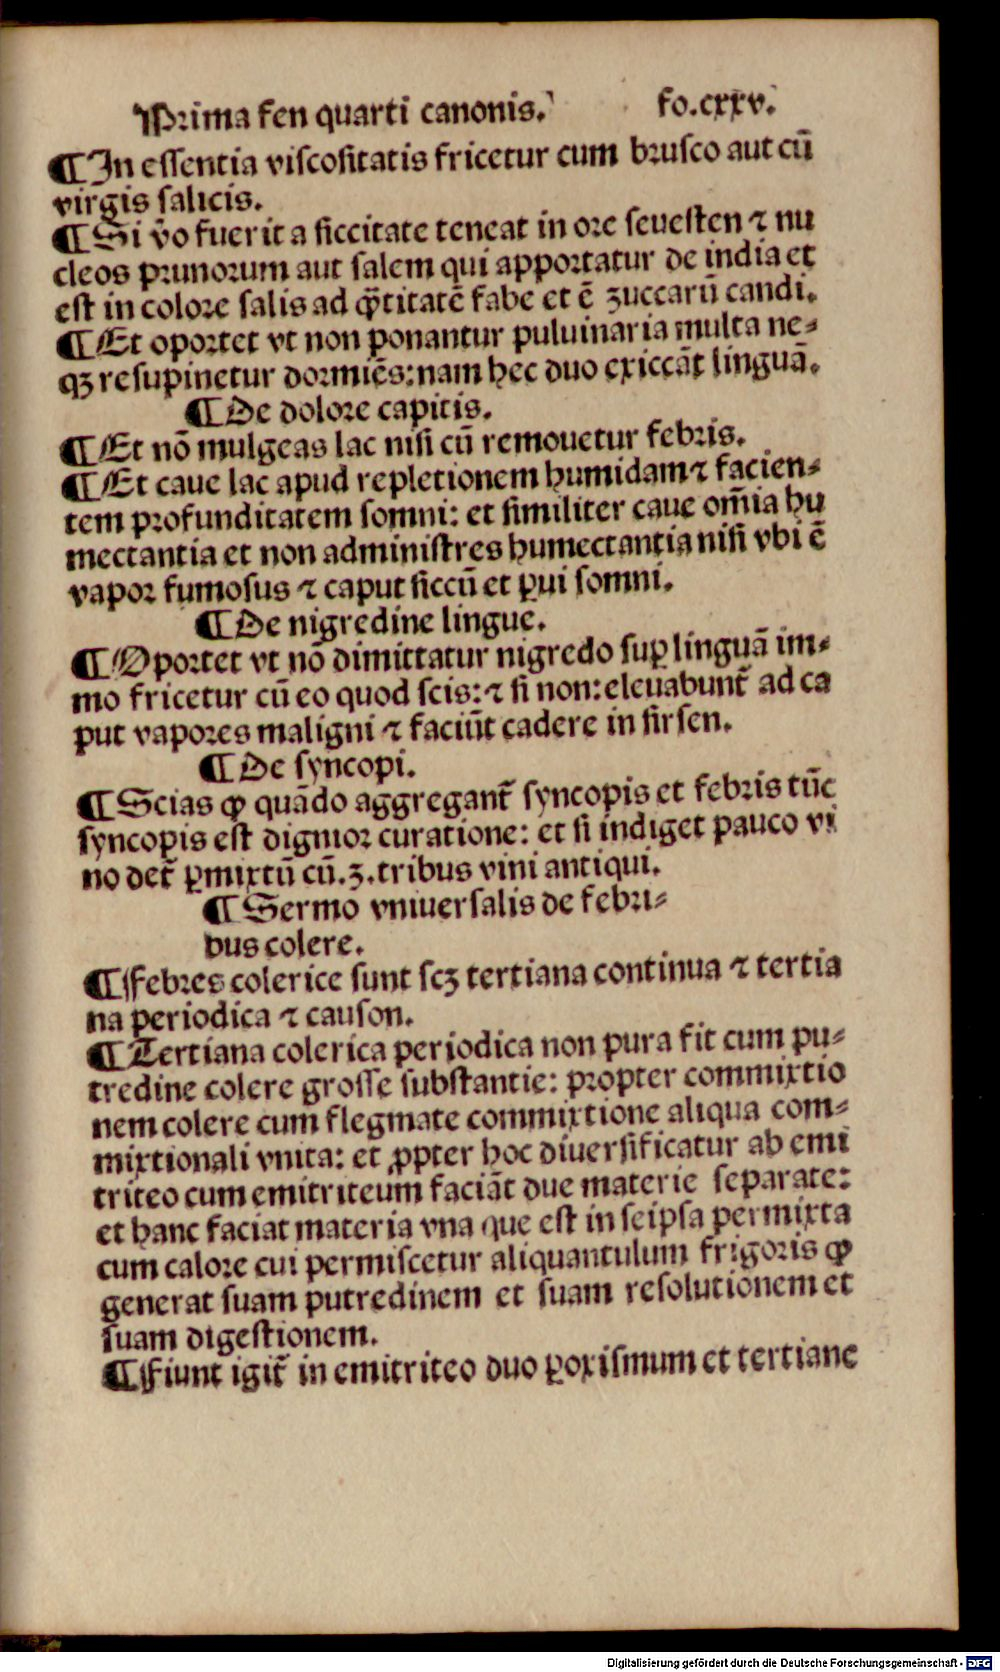 Prima fen quarti canonis. fo.cxxv.
¶In essentia viscositatis fricetur cum brusco aut cū
virgis salicis.
¶Si v̄o fuerit a siccitate teneat in ore seuesten ⁊ nu
cleos prunorum aut salem qui apportatur de india et
est in colore salis ad q̄titatē fabe et ē zuccarū candi.
¶Et oportet vt non ponantur puluinaria multa ne⸗
qꝫ resupinetur dormiēs: nam hec duo exiccāt linguā.
¶De dolore capitis.
¶Et nō mulgeas lac nisi cū remouetur febris.
¶Et caue lac apud repletionem humidam ⁊ facien⸗
tem profunditatem somni: et similiter caue om̄ia hu
mectantia et non administres humectantia nisi vbi ē
vapor fumosus ⁊ caput siccū et ꝑui somni.
¶De nigredine lingue.
¶Oportet vt nō dimittatur nigredo suꝑ linguā im⸗
mo fricetur cū eo quod scis: ⁊ si non: eleuabunt̄ ad ca
put vapores maligni ⁊ faciūt cadere in sirsen.
¶De syncopi.
¶Scias ꝙ quādo aggregant̄ syncopis et febris tūc
syncopis est dignior curatione: et si indiget pauco vi
no det̄ ꝑmixtū cū.ʒ.tribus vini antiqui.
¶Sermo vniuersalis de febri⸗
bus colere.
¶Febres colerice sunt scꝫ tertiana continua ⁊ tertia
na periodica ⁊ causon.
¶Tertiana colerica periodica non pura fit cum pu⸗
tredine colere grosse substantie: propter commixtio
nem colere cum flegmate commixtione aliqua com⸗
mixtionali vnita: et ꝓpter hoc diuersificatur ab emi
triteo cum emitriteum faciāt due materie separate:
et hanc faciat materia vna que est in seipsa permixta
cum calore cui permiscetur aliquantulum frigoris ꝙ
generat suam putredinem et suam resolutionem et
suam digestionem.
¶Fiunt igit̄ in emitriteo duo ꝑoxismum et tertiane
Digitalisierung gefördert durch die Deutsche Forschungsgemeinschaft - DFG